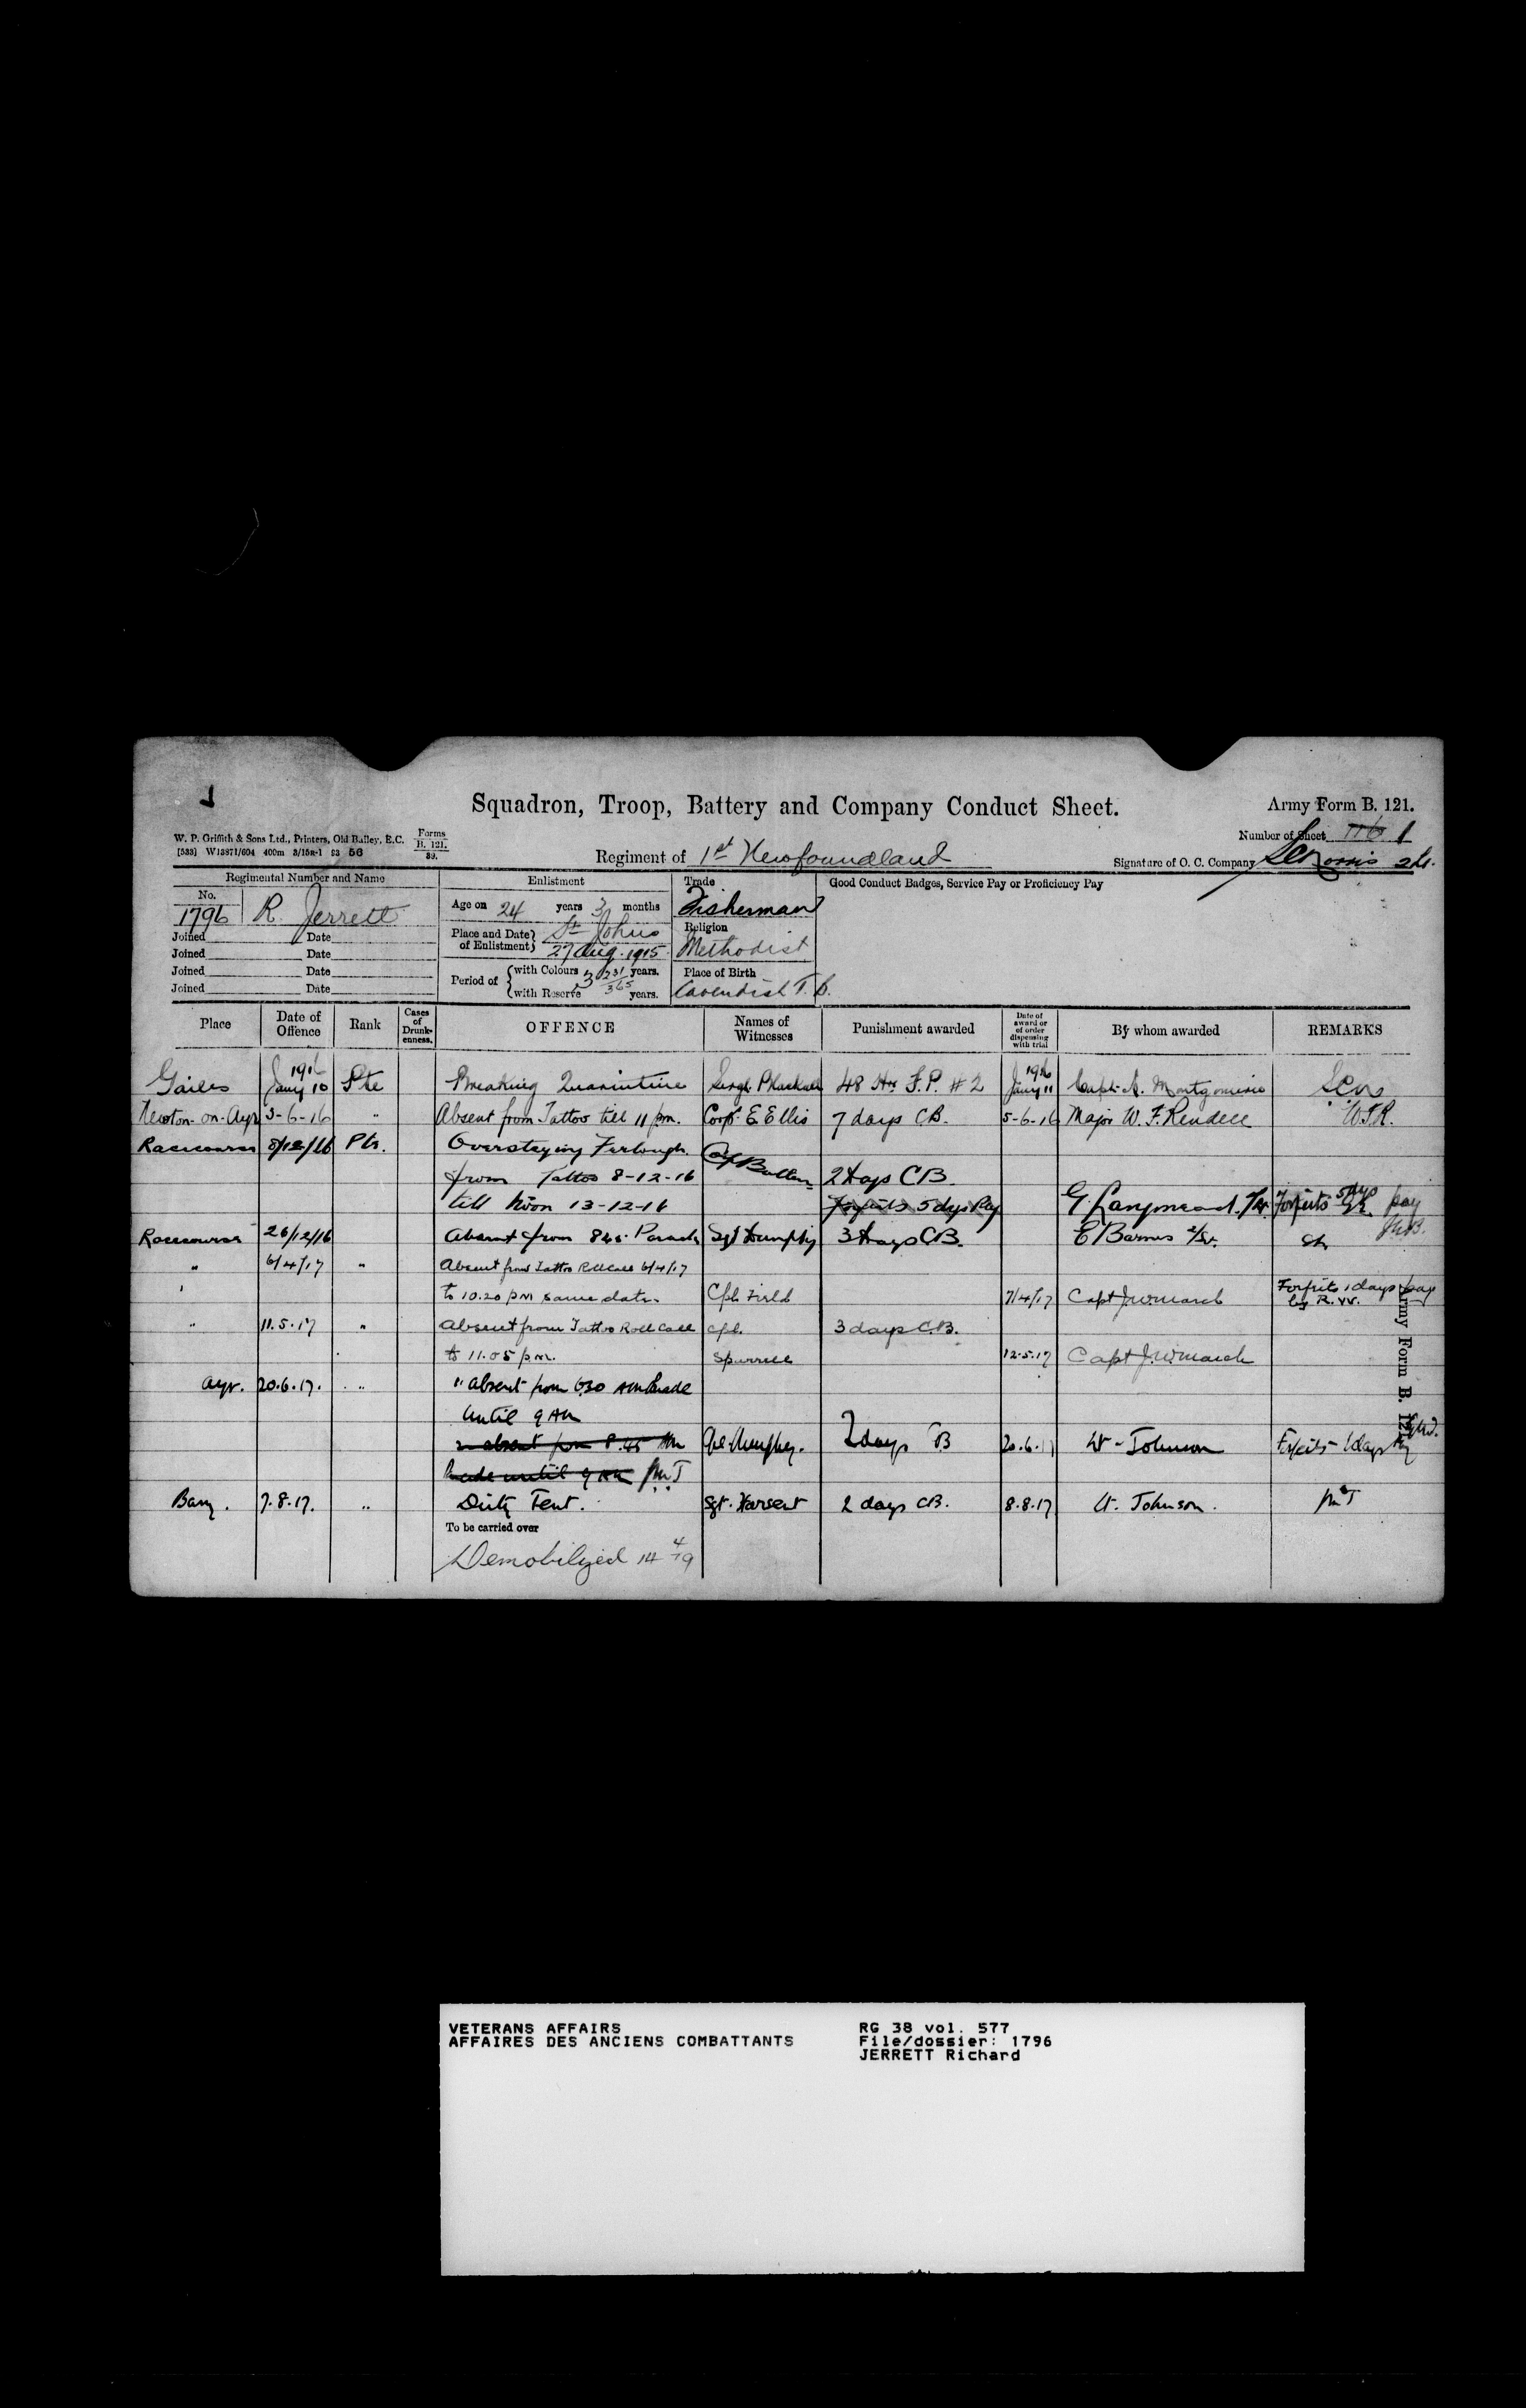 Squadron, Troop, Battery and Company Conduct Sheet.
Army Form B. 121.
W. P. Griffith & Sons Ltd., Printers, Old Bailey, E.C.
Forms B. 121. 39.
Number of Sheet 1
Regiment of 1st Newfoundland
Signature of O. C. Company
Regimental Number and Name
No. 1796 R. Jerrett
Joined Date
Joined Date
Joined Date
Joined Date
Enlistment
Age on 24 years 3 months
Place and Date of Enlistment } St Johns 27 Aug. 1915.
Period of { with Colours 3 231/365 years.
with Reserve years.
Trade
Fisherman
Religion
Methodist
Place of Birth
Cavendish T. B.
Good Conduct Badges, Service Pay or Proficiency Pay
Place Date of Offence Rank Cases of Drunk-enness. OFFENCE Names of Witnesses Punishment awarded Date of award or of order dispensing with trial By whom awarded REMARKS
Gailes 1916 Jany 10 Pte Breaking Quarintine Sergt 48 Hrs F.P. #2 1916 Jany 11 Capt. A. Montgomerie
Newton-on-Ayr 3-6-16 " Absent from Tattoo till 11 pm. Corp. E Ellis 7 days CB. 5-6-16 Major W. F. Rendell W.F.R.
Racecourse 8/12/16 Pte. Overstaying Furlough
from Tattoo 8-12-16 Butler 2 Days CB.
till Noon 13-12-16 Forfeits 5 dys Pay G. Langmead Forfeits 5 days pay
Racecourse 26/12/16 Absent from 845 Parade Sgt Dumphy 3 Days CB. E Barnes
" 6/4/17 " Absent from Tattoo Roll Call 6/4/17
to 10.20 pm same date. Cpl. Field 7/4/17 Capt J.W. March Forfeits 1 days pay by R.W.
" 11.5.17 " Absent from Tattoo Roll Call Cpl. 3 days C.B.
to 11.05 p.m. Spurrell 12.5.17 Capt J.W. March
Ayr. 20.6.17. " " absent from 6.30 AM Parade
until 9 AM
absent from 8.45 AM 2 days CB 20.6.17 Lt - Johnson Forfeits 1 days
Parade until 9 AM
Barry. 7.8.17. " Dirty Tent. Sgt. Harsent 2 days CB. 8.8.17 Lt. Johnson.
To be carried over
Demobilized 14 4/19
Army Form B. 121.
VETERANS AFFAIRS
AFFAIRES DES ANCIENS COMBATTANTS
RG 38 vol. 577
File/dossier: 1796
JERRETT Richard